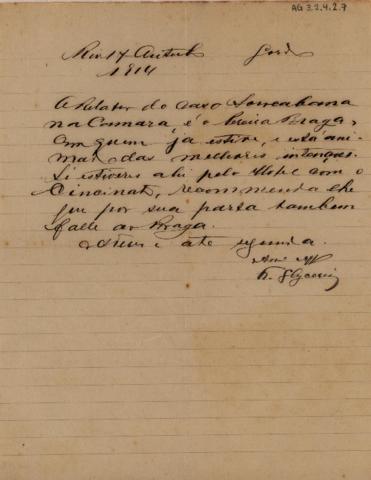 AG 3.2.4.2.7
Rio 17 Outub
1914
O Relator do caso Sorocabana
na Camara, é o Braga,
com quem já estive, e está ani-
mado das melhores intenções.
Si estiveres ahi pelo com o
Cincinato, recommenda lhe
que por sua parte tambem
falle ao Braga.
Adeus e até segunda.
F. Glycerio